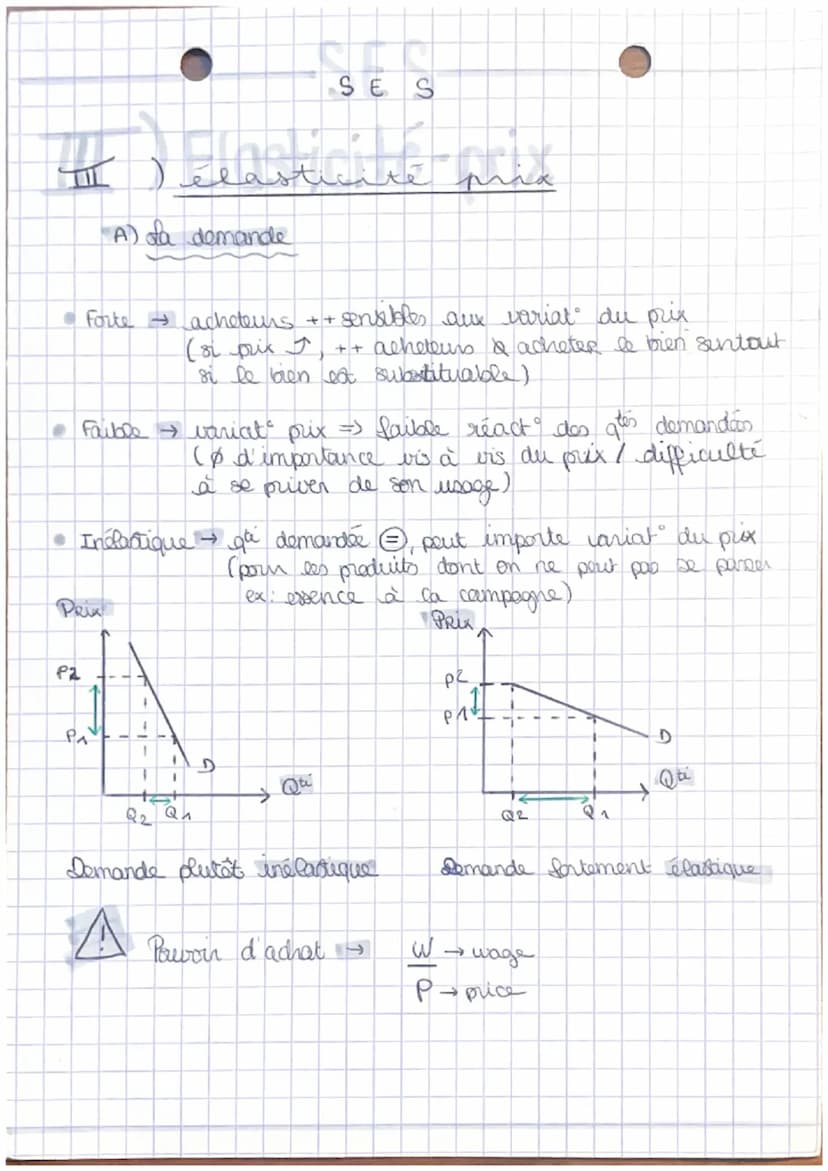 SES
III) élasticité prix
A) La demande
• Forte → acheteurs ++ sensibles aux variat° du prix
(si prix ↑, ++ acheteurs acheter le bien surtout
si le bien est substituable)
• Faible → variat° prix => faible réact° des qtés demandées
(Ø d'importance vis à vis du prix / difficulté
à se priver de son usage)
• Inélastique → qté demandée =, peut importe variat° du prix
(pour les produits dont on ne peut pas se passer
ex: essence à la campagne)
Prix
P2
P1
D
Qté
Q2 Q1
Prix
P2
P1
D
Qté
Q2 Q1
Demande plutôt inélastique
Demande fortement élastique
! Pouvoir d'achat → W → wage
P → price